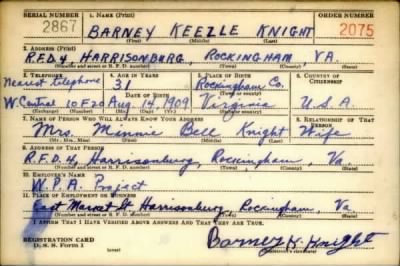 SERIAL NUMBER 1. NAME (Print) ORDER NUMBER
2867 BARNEY KEEZLE KNIGHT 2075
(First) (Middle) (Last)
2. ADDRESS (Print)
R.F.D 4 HARRISONBURG, ROCKINGHAM, VA.
(Number and street or R. F. D. number) (Town) (County) (State)
3. TELEPHONE 4. AGE IN YEARS 5. PLACE OF BIRTH 6. COUNTRY OF CITIZENSHIP
Nearest telephone 31 Rockingham Co.
DATE OF BIRTH (Town or county)
W. Central 10F20 Aug. 14, 1909 Virginia U.S.A.
(Exchange) (Number) (Mo.) (Day) (Yr.) (State or country)
7. NAME OF PERSON WHO WILL ALWAYS KNOW YOUR ADDRESS 8. RELATIONSHIP OF THAT PERSON
Mrs. Minnie Bell Knight Wife
(Mr., Mrs., Miss) (First) (Middle) (Last)
9. ADDRESS OF THAT PERSON
R.F.D. 4, Harrisonburg, Rockingham, Va.
(Number and street or R. F. D. number) (Town) (County) (State)
10. EMPLOYER'S NAME
W.P.A. Project
11. PLACE OF EMPLOYMENT OR BUSINESS
East Market St. Harrisonburg, Rockingham, Va.
(Number and street or R. F. D. number) (Town) (County) (State)
I AFFIRM THAT I HAVE VERIFIED ABOVE ANSWERS AND THAT THEY ARE TRUE.
REGISTRATION CARD
D. S. S. Form 1 (over) Barney K. Knight
(Registrant's signature)